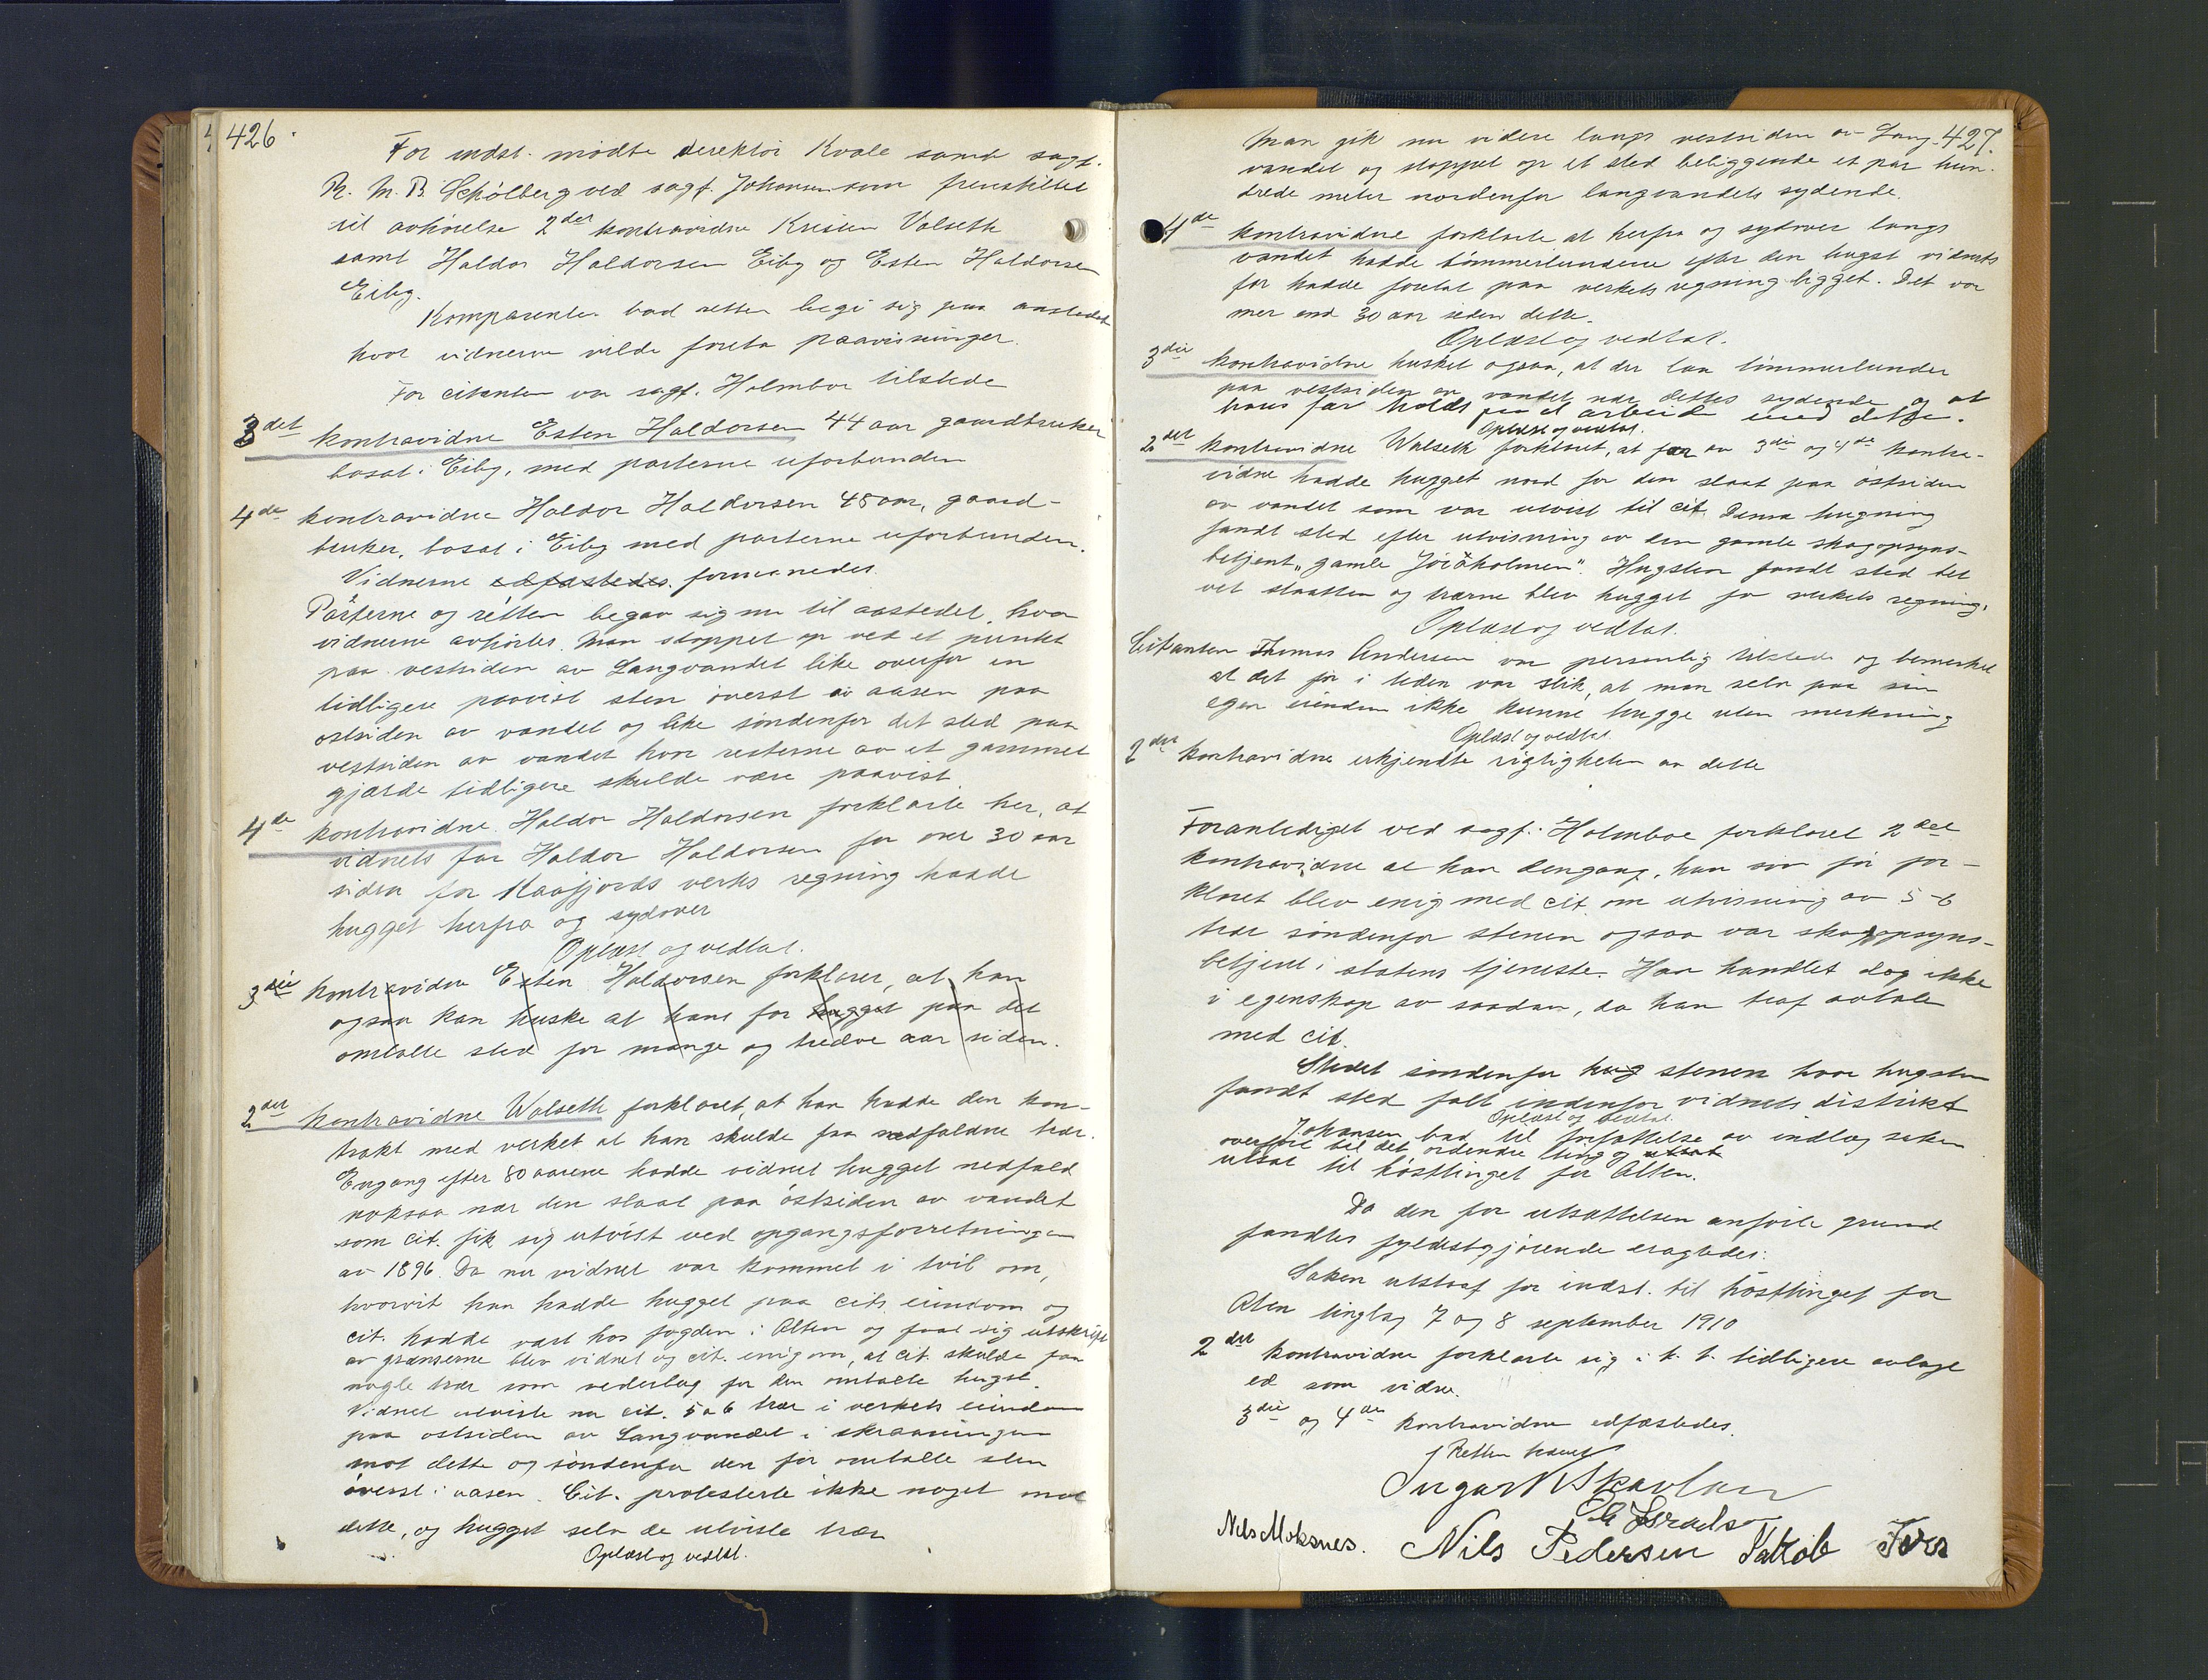 426
For indst. mødte direktør Kvale samt sagf.
R. M. B. Schølberg ved sagf. Johansen som fremstillet
til avhørelse 2det kontravidne Kristen Valseth
samt Haldor Haldorsen Eiby og Esten Haldorsen
Eiby.
Komparenten bad retten begi sig paa aastedet
hvor vidnerne vilde foreta paavisninger.
For citanten var sagf. Holmboe tilstede
3det kontravidne Esten Haldorsen 44 aar gaardbruker
bosat i Eiby, med parterne uforbunden
4de kontravidne Haldor Haldorsen 48 aar, gaard-
bruker, bosat i Eiby med parterne uforbunden.
Vidnerne edfæstedes formanedes.
Parterne og retten begav sig nu til aastedet, hvor
vidnerne avhørtes. Man stoppet op ved et punkt
paa vestsiden av Langvandet like overfor en
tidligere paavist sten øverst i aasen paa
østsiden av vandet og like søndenfor det sted paa
vestsiden av vandet hvor resterne av et gammel
gjærde tidligere skulde være paavist
4de kontravidne Haldor Haldorsen forklarte her, at
vidnets far Haldor Haldorsen for over 30 aar
siden for Kaafjords verks regning hadde
hugget herfra og sydover
Oplæst og vedtat.
3die kontravidne Esten Haldorsen forklarer, at han
ogsaa kan huske at hans far hugget paa det
omtalte sted for mange og tredve aar siden.
2det kontravidne Walseth forklaret, at han hadde den kon-
trakt med verket at han skulde faa nedfaldne trær.
Engang efter 80 aarene hadde vidnet hugget nedfald
noksaa nær den slaat paa østsiden av vandet
som cit. fik sig utvist ved opgangsforretningen
av 1896. Da nu vidnet var kommet i tvil om,
hvorvit han hadde hugget paa cits. eiendom og
cit. hadde vært hos fogden i Alten og faat sig utskrift
av grænserne blev vidnet og cit. enig om, at cit. skulde faa
nogle trær som vederlag for den omtalte hugst.
Vidnet utviste nu cit. 5 a 6 trær i verkets eiendom
paa østsiden av Langvandet i skraaningen
mot dette og søndenfor den før omtalte sten
øverst i aasen. Cit. protesterte ikke noget mot
dette, og hugget selv de utviste trær
Oplæst og vedtat.
427.
Man gik nu videre langs vestsiden av Lang-
vandet og stoppet op et sted beliggende et par hun-
drede meter nordenfor langvandets sydende.
4de kontravidne forklarte at herfra og sydover langs
vandet hadde tømmerlunderne efter den hugst vidnets
far hadde foretat paa verkets regning ligget. Det var
mer end 30 aar siden dette.
Oplæst og vedtat.
3die kontravidne husket ogsaa, at der laa tømmerlunder
paa vestsiden av vandet nær dettes sydende og at
hans far holdt paa et arbeide med dette.
Oplæst og vedtat.
2det kontravidne Walseth forklaret, at far av 3die og 4de kontra-
vidne hadde hugget nord for den slaat paa østsiden
av vandet som var utvist til cit. Denne hugning
fandt sted efter utvisning av den gamle skogopsyns-
betjent "gamle Joraholmen". Hugsten fandt sted tet
ved slaatten og trærne blev hugget for verkets regning.
Oplæst og vedtat.
Citanten Thomas Andersen var personlig tilstede og bemerket
at det før i tiden var slik, at man selv paa sin
egen eiendom ikke kunne hugge uten merkning
Oplæst og vedtat
2det kontravidne erkjendte rigtigheten av dette
Foranlediget ved sagf. Holmboe forklaret 2det
kontravidne at han dengang, han som før for-
klaret blev enig med cit. om utvisning av 5-6
trær søndenfor stenen ogsaa var skogopsyns-
betjent i statens tjeneste. Han handlet dog ikke
i egenskap av saadan, da han traf avtale
med cit.
Stedet søndenfor hug stenen hvor hugsten
fandt sted falt indenfor vidnets distrikt
Oplæst og vedtat.
Johansen bad til forfattelse av indlæg saken
overført til det ordendre ting og utsat
utsat til høsttinget for Alten.
Da den for utsættelsen anførte grund
fandtes fyldestgjørende eragtedes:
Saken utstaar for indst. til høsttinget for
Alten tinglag 7 og 8 september 1910
2det kontravidne forklarte sig i h. t. tidligere avlagt
ed som vidne.
3die og 4de kontravidne edfæstedes.
Retten hævet
Nils Moksnes. Nils Pedersen Jakob Ivers